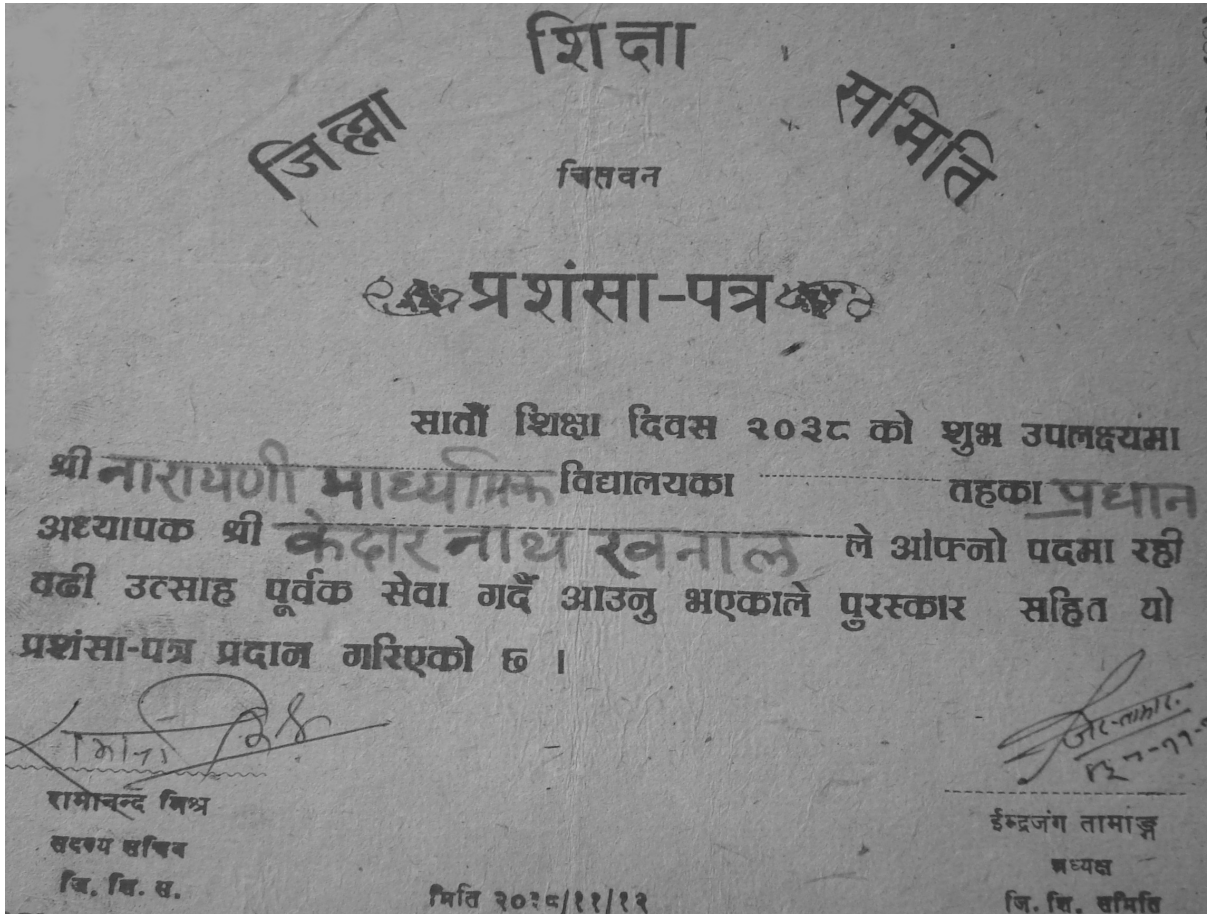 जिल्ला शिक्षा समिति
चितवन
प्रशंसा-पत्र
सातौं शिक्षा दिवस २०३८ को शुभ उपलक्ष्यमा
श्री नारायणी माध्यमिक विद्यालयका तहका प्रधान
अध्यापक श्री केदार नाथ खनाल ले ओफ्नो पदमा रही
वढी उत्साह पूर्वक सेवा गर्दै आउनु भएकाले पुरस्कार सहित यो
प्रशंसा-पत्र प्रदान गरिएको छ ।
रामानन्द मिश्र
सदस्य सचिव
जि. शि. स.
मिति २०३८/११/१२
ईन्द्रजंग तामाङ्ग
अध्यक्ष
जि. शि. समिति